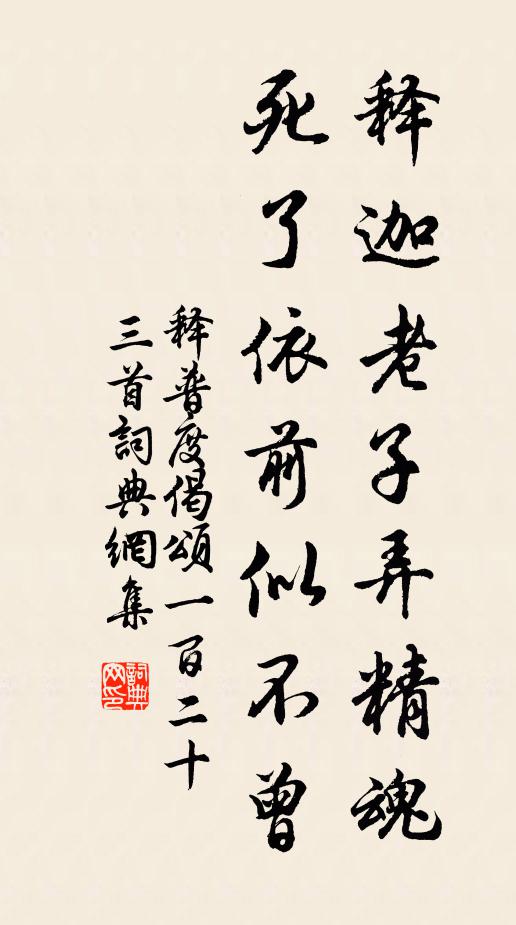 释迦老子弄精魂
死了依前似不曾
释普度偈頌一百二十
三首詞典網集
詞典网印